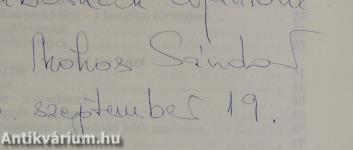 Mohos Sándor
szeptember 19.
Antikvárium.hu